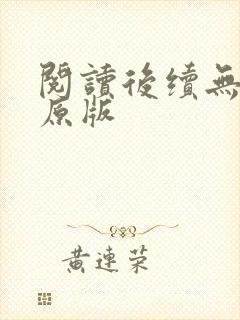 閱讀後續無
原版
黃連荣